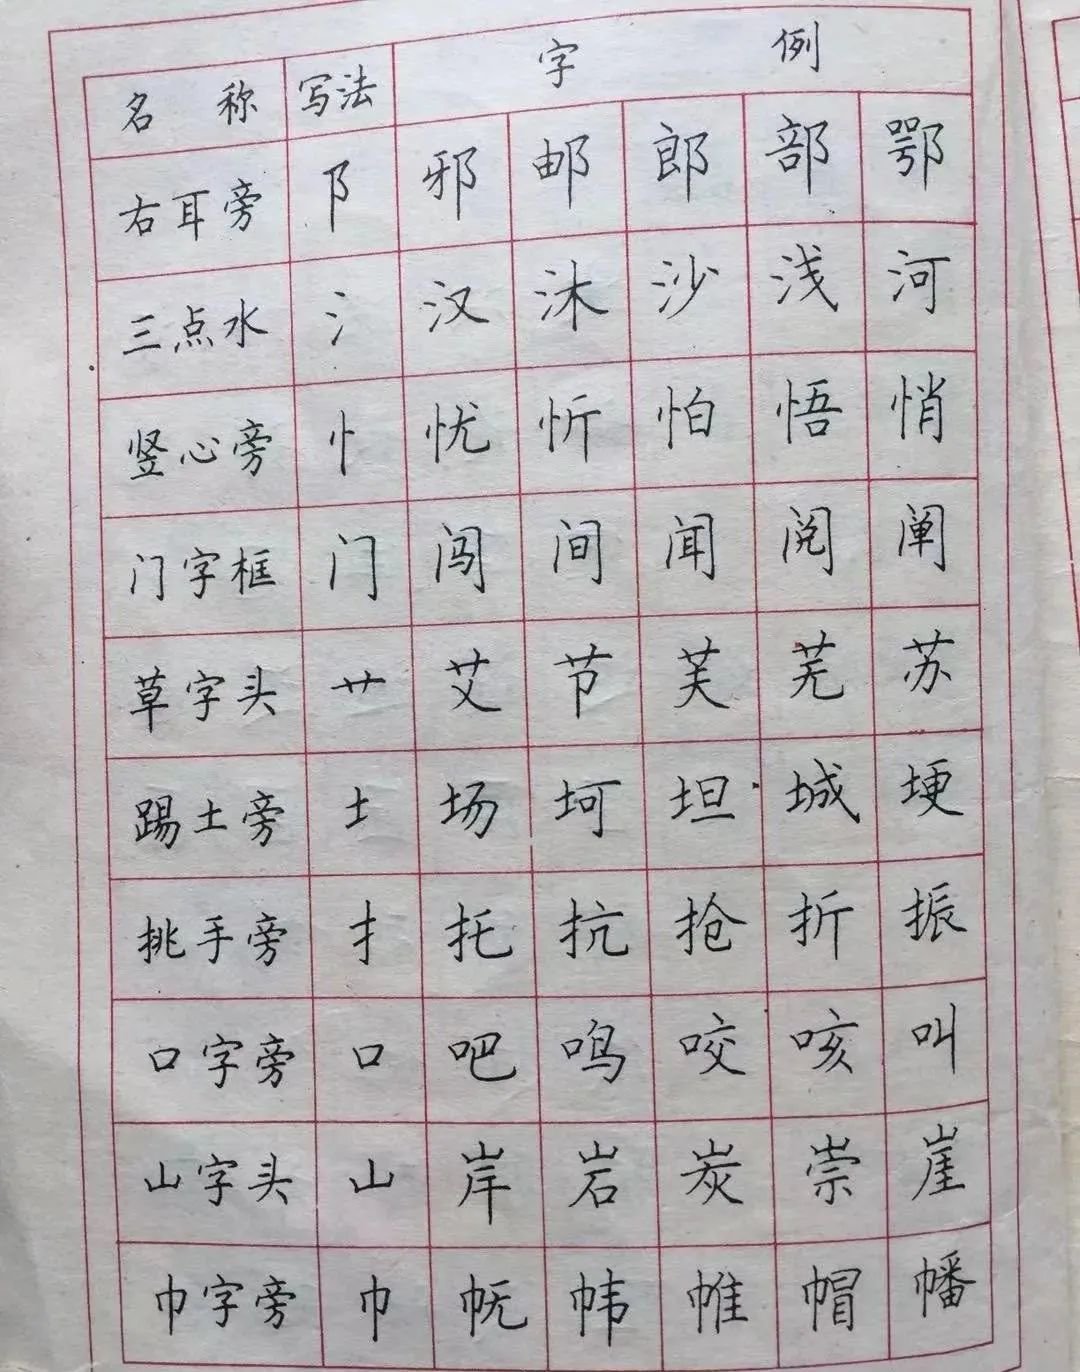 名称 写法 字例
右耳旁 阝 邪 邮 郎 部 鄂
三点水 氵 汉 沐 沙 浅 河
竖心旁 忄 忧 忻 怕 悟 悄
门字框 门 闯 间 闻 阅 阐
草字头 艹 艾 节 芙 芜 苏
踢土旁 土 场 坷 坦 城 埂
挑手旁 扌 托 抗 抢 折 振
口字旁 口 吧 鸣 咬 咳 叫
山字头 山 岸 岩 炭 崇 崖
巾字旁 巾 帎 帏 帷 帽 幡